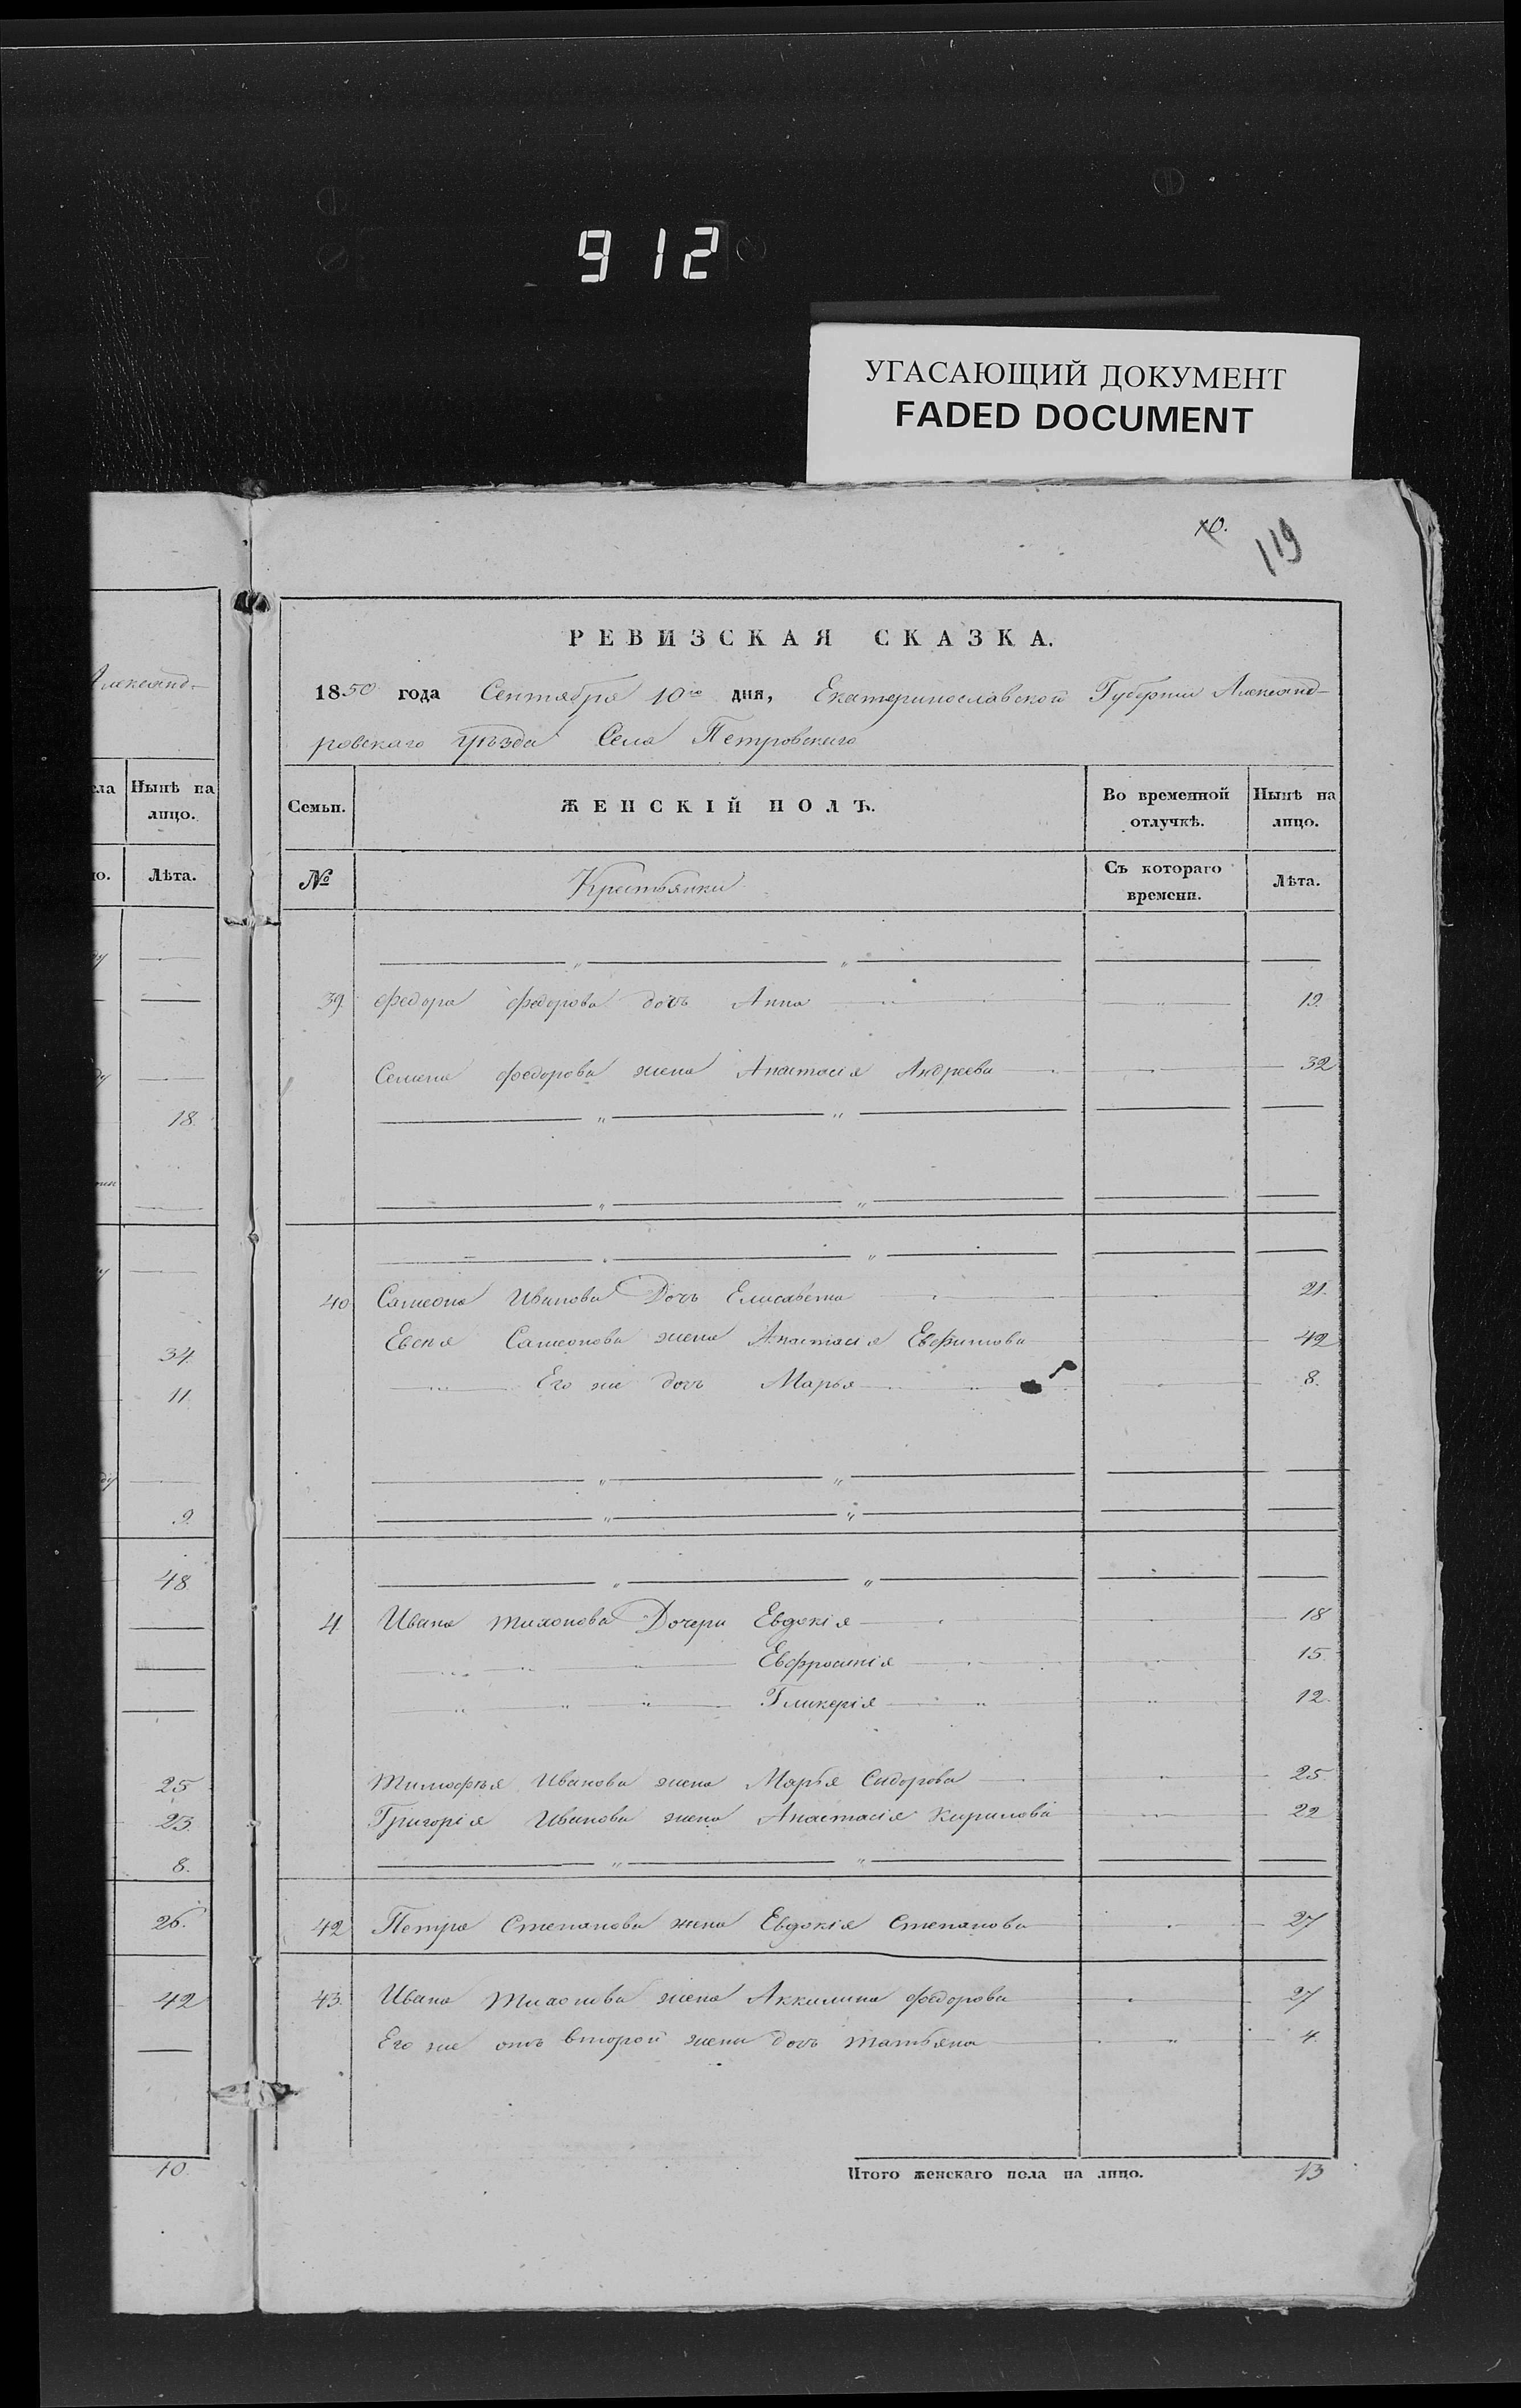 912
УГАСАЮЩИЙ ДОКУМЕНТ
FADED DOCUMENT
10.
119
РЕВИЗСКАЯ СКАЗКА.
1850 года Сентября 10го дня, Екатеринославской Губернии Александ-
ровскаго уѣзда Села Петровскаго
Семьи. ЖЕНСКІЙ ПОЛЪ. Во временной отлучкѣ. Нынѣ на лицо.
№ Крестьянки Съ котораго времени. Лѣта.
39. Федора Федорова дочь Анна 19.
Семена Федорова жена Анастасія Андреева 32
40 Самсона Иванова Дочь Елисавета 21.
Евсея Самсонова жена Анастасія Евфимова 42
Его же дочь Марья 8.
4 Ивана Тихонова Дочери Евдокія 18
Евфросинія 15
Гликерія 12.
Тимофея Иванова жена Марья Сидорова 25
Григорія Иванова жена Анастасія Кирилова 22
42 Петра Степанова жена Евдокія Степанова 27
43. Ивана Тихонова жена Аккилина Федорова 27
Его же отъ второй жены дочь Татьяна 4.
Итого женскаго пола на лицо. 13
Александ-
ла Нынѣ на лицо.
о. Лѣта.
18.
34.
11.
9.
48
25
23.
8.
26.
42
10.